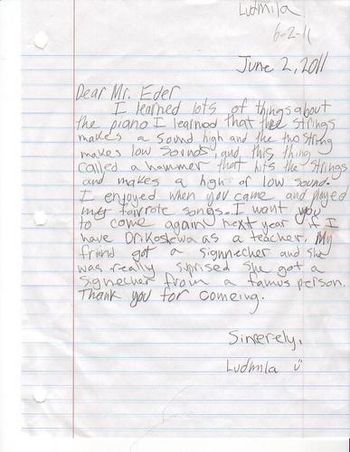 Ludmila
6-2-11
June 2, 2011
Dear Mr. Eder
I learned lots of things about
the piano I learnod that thee strings
makes a sound high and the two string
makes low sounds, and this thing
called a hammer that hits the strings
and makes a high or low sound.
I enjoyed when you came and played
my fairrote songs. I want you
to come again next year if I
have as a teacher. My
friend got a signnecher and she
was really suprised she got a
signecher from a famus person.
Thank you for comeing.
Sinverely,
Ludmila